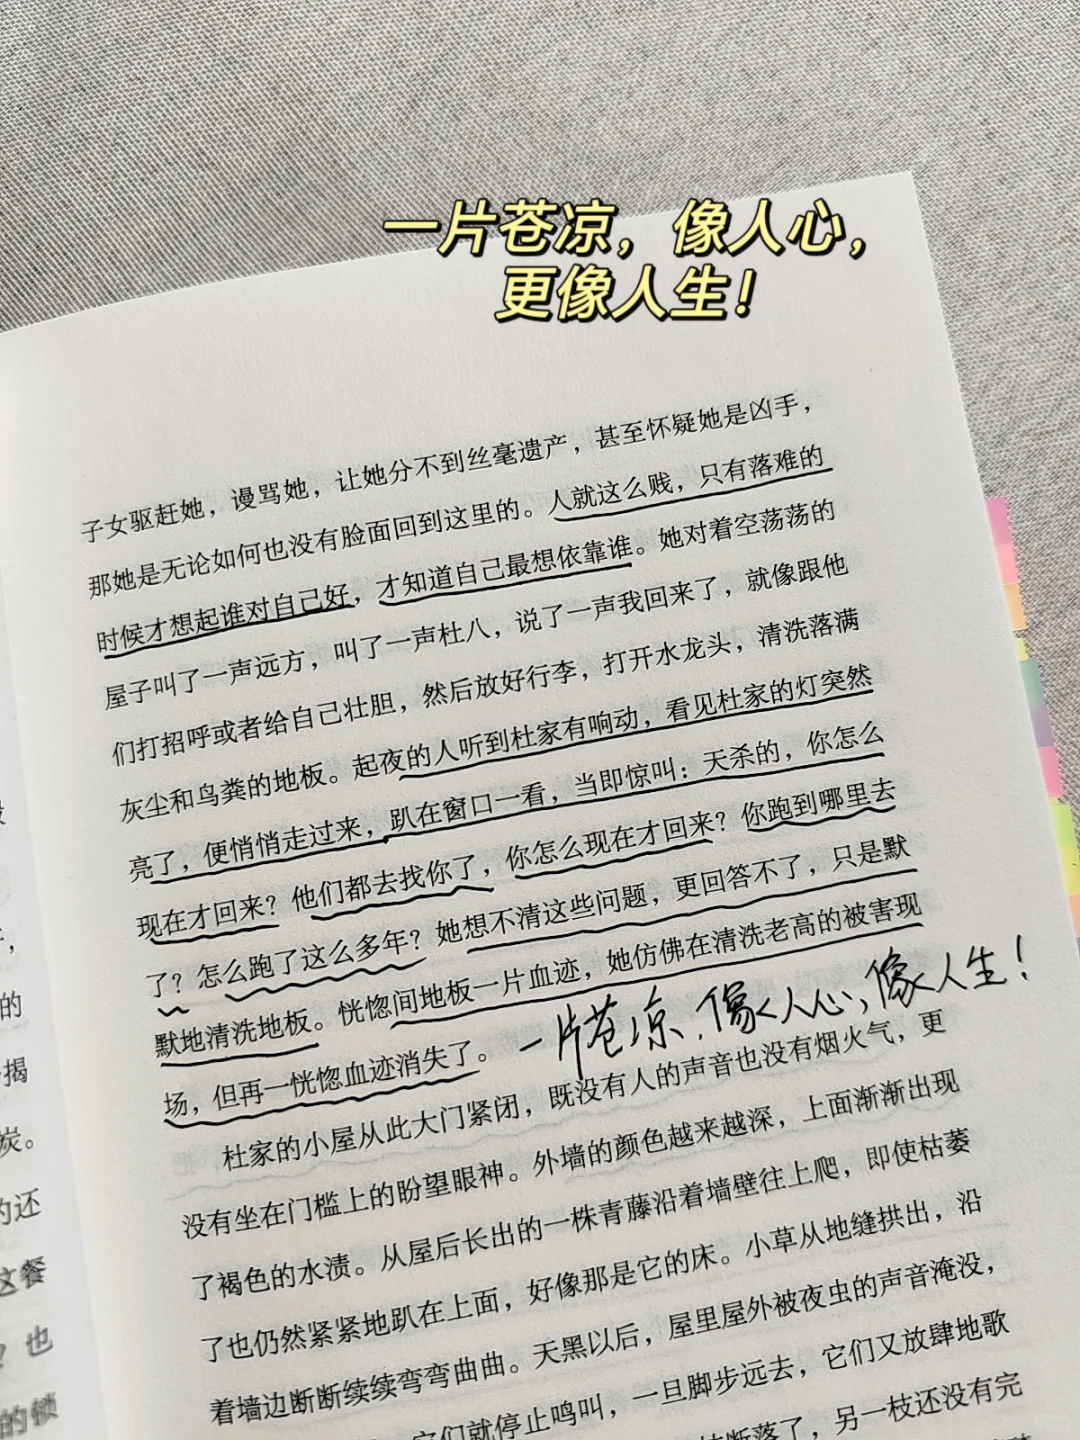 一片苍凉，像人心，
更像人生！
子女驱赶她，谩骂她，让她分不到丝毫遗产，甚至怀疑她是凶手，
那她是无论如何也没有脸面回到这里的。人就这么贱，只有落难的
时候才想起谁对自己好，才知道自己最想依靠谁。她对着空荡荡的
屋子叫了一声远方，叫了一声杜八，说了一声我回来了，就像跟他
们打招呼或者给自己壮胆，然后放好行李，打开水龙头，清洗落满
灰尘和鸟粪的地板。起夜的人听到杜家有响动，看见杜家的灯突然
亮了，便悄悄走过来，趴在窗口一看，当即惊叫：天杀的，你怎么
现在才回来？他们都去找你了，你怎么现在才回来？你跑到哪里去
了？怎么跑了这么多年？她想不清这些问题，更回答不了，只是默
默地清洗地板。恍惚间地板一片血迹，她仿佛在清洗老高的被害现
场，但再一恍惚血迹消失了。
一片苍凉，像人心，像人生！
杜家的小屋从此大门紧闭，既没有人的声音也没有烟火气，更
没有坐在门槛上的盼望眼神。外墙的颜色越来越深，上面渐渐出现
了褐色的水渍。从屋后长出的一株青藤沿着墙壁往上爬，即使枯萎
了也仍然紧紧地趴在上面，好像那是它的床。小草从地缝拱出，沿
着墙边断断续续弯弯曲曲。天黑以后，屋里屋外被夜虫的声音淹没，
它们就停止鸣叫，一旦脚步远去，它们又放肆地歌
断落了，另一枝还没有完
的
揭
炭。
的还
这餐
？也
的锁